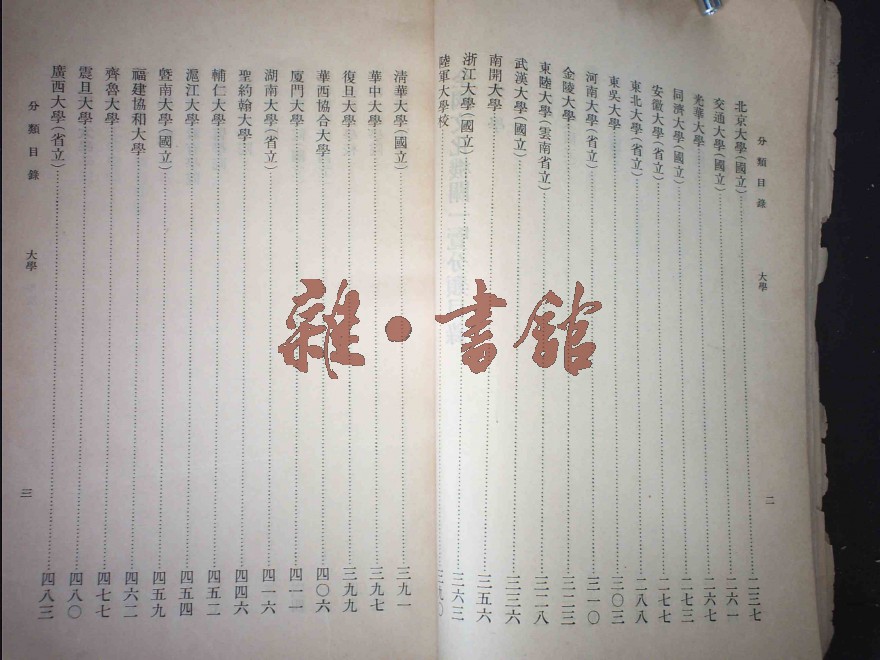 分類目錄 大學 二
北京大學(國立)……二三七
交通大學(國立)……二六一
光華大學……二六七
同濟大學(國立)……二七三
安徽大學(省立)……二七七
東北大學(省立)……二八八
東吳大學……三〇三
河南大學(省立)……三一〇
金陵大學……三二三
東陸大學(雲南省立)……三二八
武漢大學(國立)……三三六
南開大學……三五六
浙江大學(國立)……三六三
陸軍大學校……三九〇
清華大學(國立)……三九一
華中大學……三九七
復旦大學……三九九
華西協合大學……四〇六
廈門大學……四一一
湖南大學(省立)……四一六
聖約翰大學……四四六
輔仁大學……四五二
滬江大學……四五四
暨南大學(國立)……四五九
福建協和大學……四六二
齊魯大學……四七七
震旦大學……四八〇
廣西大學(省立)……四八三
分類目錄 大學 三
雜•書館